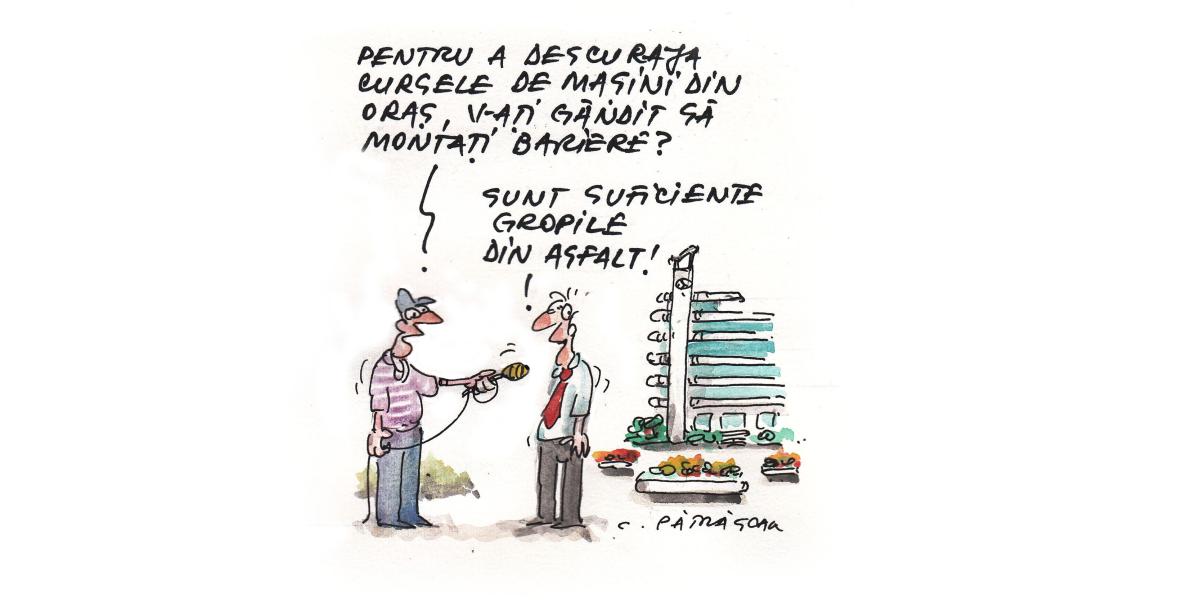 PENTRU A DESCURAJA
CURSELE DE MAȘINI DIN
ORAȘ, V-AȚI GÂNDIT SĂ
MONTAȚI BARIERE?
SUNT SUFICIENTE
GROPILE
DIN ASFALT!
C. PĂTRĂȘCAN